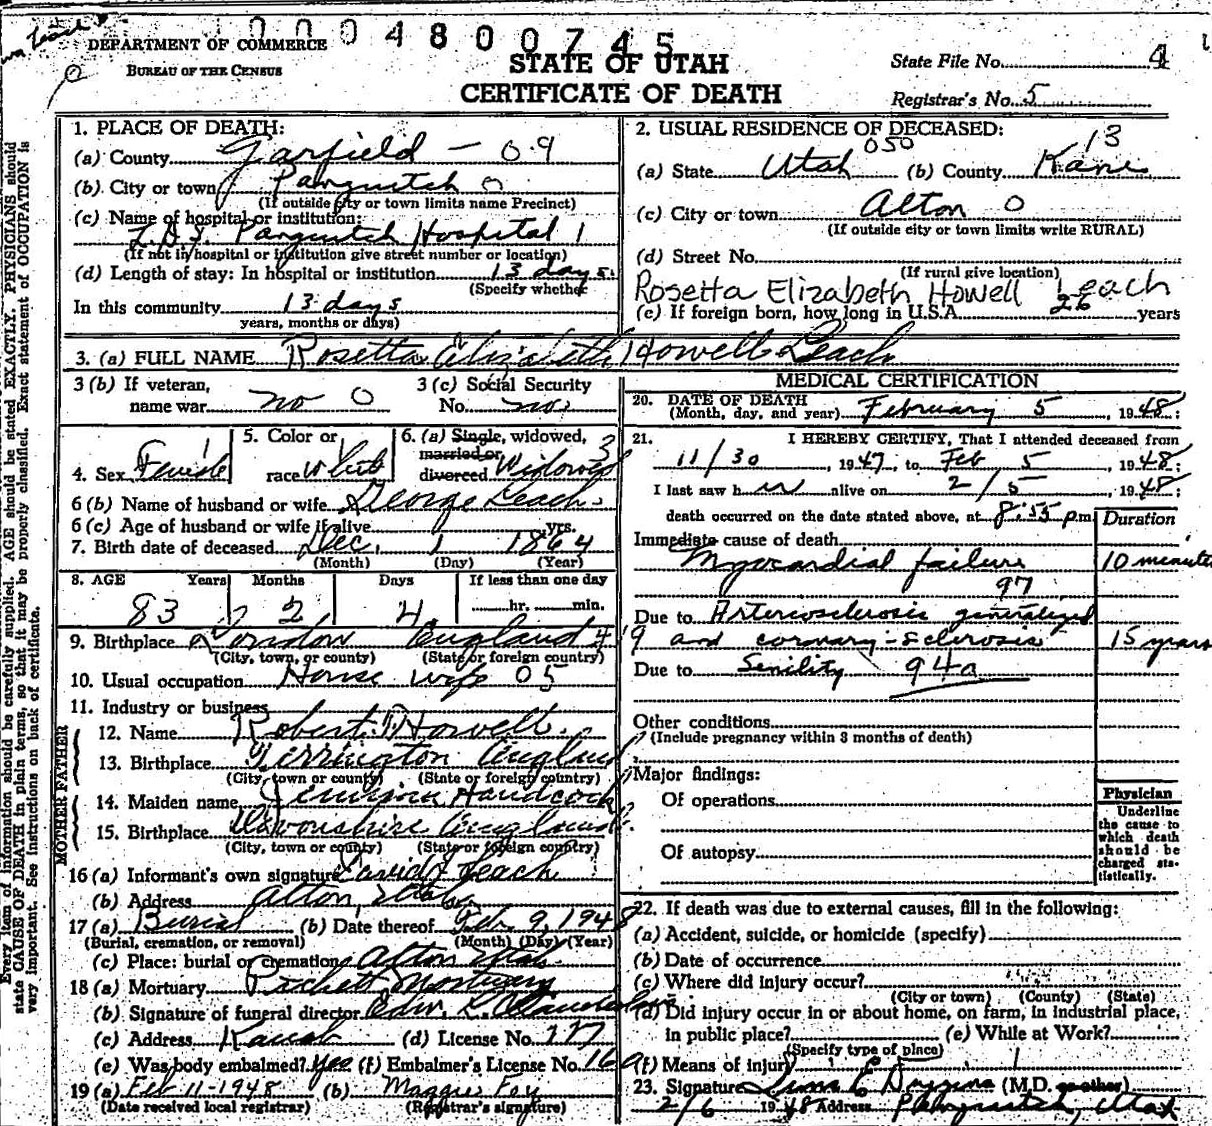 0004800745
DEPARTMENT OF COMMERCE
BUREAU OF THE CENSUS
STATE OF UTAH
CERTIFICATE OF DEATH
State File No. 4
Registrar's No. 5
Every item of information should be carefully supplied. AGE should be stated EXACTLY. PHYSICIANS should
state CAUSE OF DEATH in plain terms, so that it may be properly classified. Exact statement of OCCUPATION is
very important. See instructions on back of certificate.
1. PLACE OF DEATH:
(a) County Garfield - 09
(b) City or town Panguitch 0
(If outside city or town limits name Precinct)
(c) Name of hospital or institution:
L.D.S. Panguitch Hospital 1
(If not in hospital or institution give street number or location)
(d) Length of stay: In hospital or institution 13 days.
(Specify whether
In this community 13 days
years, months or days)
2. USUAL RESIDENCE OF DECEASED:
050 13
(a) State Utah (b) County Kane
(c) City or town Alton 0
(If outside city or town limits write RURAL)
(d) Street No.
(If rural give location)
Rosetta Elizabeth Howell Leach
(e) If foreign born, how long in U.S.A. 26 years
3. (a) FULL NAME Rosetta Elizabeth Howell Leach
3 (b) If veteran,
name war no 0
3 (c) Social Security
No. no
4. Sex Female
5. Color or
race White
6. (a) Single, widowed,
married or
divorced Widowed 3
6 (b) Name of husband or wife George Leach
6 (c) Age of husband or wife if alive yrs.
7. Birth date of deceased Dec. 1 1864
(Month) (Day) (Year)
8. AGE Years Months Days If less than one day
83 2 4 hr. min.
9. Birthplace London England 4
(City, town, or county) (State or foreign country)
10. Usual occupation House wife 05
11. Industry or business
FATHER
12. Name Robert Howell
13. Birthplace England
(City, town or county) (State or foreign country)
MOTHER
14. Maiden name Handcock
15. Birthplace Devonshire England
(City, town or county) (State or foreign country)
16 (a) Informant's own signature David J Leach
(b) Address Alton, Utah
17 (a) Burial (b) Date thereof Feb. 9, 1948
(Burial, cremation, or removal) (Month) (Day) (Year)
(c) Place: burial or cremation Alton Utah
18 (a) Mortuary Mortuary
(b) Signature of funeral director
(c) Address Kanab (d) License No. 177
(e) Was body embalmed? Yes (f) Embalmer's License No. 169
19 (a) Feb 11-1948 (b) Maggie Foy
(Date received local registrar) (Registrar's signature)
MEDICAL CERTIFICATION
20. DATE OF DEATH
(Month, day, and year) February 5, 1948;
21. I HEREBY CERTIFY, That I attended deceased from
11/30, 1947, to Feb 5, 1948;
I last saw her alive on 2/5, 1948;
death occurred on the date stated above, at 8:55 p.m.
Duration
Immediate cause of death
Myocardial failure 10 minutes
97
Due to Arteriosclerosis generalized
and coronary-sclerosis 15 years
Due to Senility 94a
Other conditions
(Include pregnancy within 3 months of death)
Major findings:
Of operations
Of autopsy
Physician
Underline
the cause to
which death
should be
charged sta-
tistically.
22. If death was due to external causes, fill in the following:
(a) Accident, suicide, or homicide (specify)
(b) Date of occurrence
(c) Where did injury occur?
(City or town) (County) (State)
(d) Did injury occur in or about home, on farm, in industrial place,
in public place? (e) While at Work?
(Specify type of place)
(f) Means of injury
23. Signature (M.D. or other)
2/6 1948 Address Panguitch, Utah